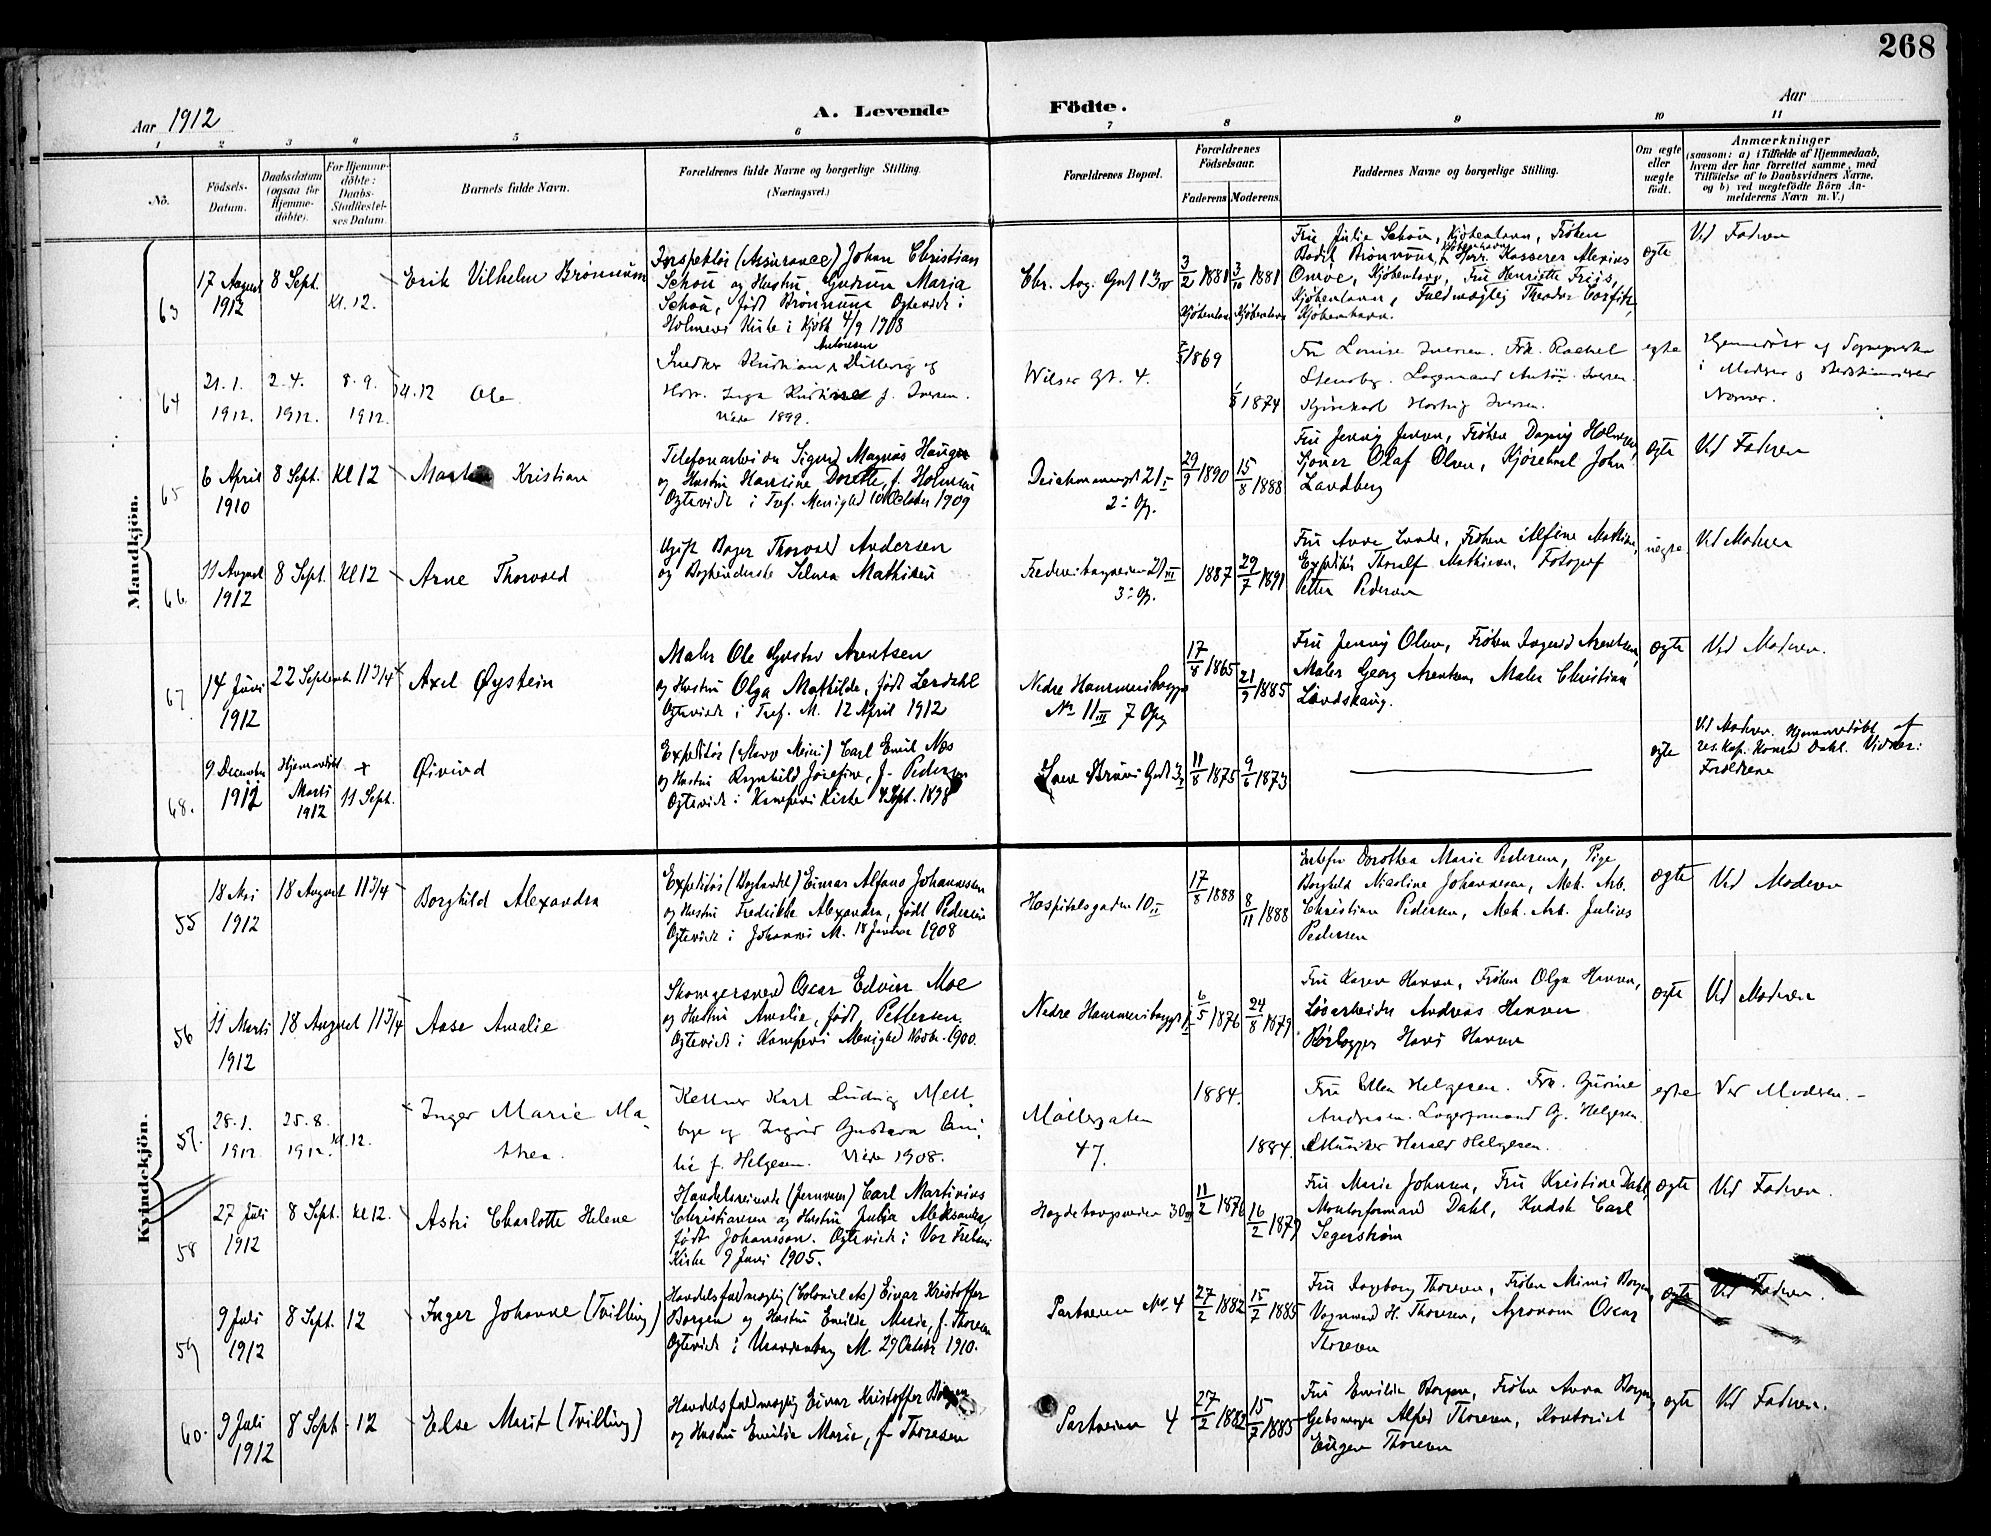 268
Aar 1912
A. Levende Födte.
Aar
1 2 3 4 5 6 7 8 9 10 11
Nö.
Födsels-Datum.
Daabsdatum (ogsaa for Hjemme-döbte).
For Hjemme-döbte: Daabs-Stadfæstel-ses Datum
Barnets fulde Navn.
Forældrenes fulde Navne og borgerlige Stilling. (Næringsvei.)
Forældrenes Bopæl.
Forældrenes Födselsaar.
Faderens Moderens
Faddernes Navne og borgerlige Stilling.
Om ægte eller uægte födt.
Anmærkninger
(saasom: a) i Tilfælde af Hjemmedaab, hvem der har forrettet samme, med Tilföielse af to Daabsvidners Navne, og b) ved uægtefödte Börn An-melderens Navn m. V.)
Mandkjön.
63
17 August 1912
8 Sept.
Kl. 12.
Erik Vilhelm Brönnum
Inspektör (Assurance) Johan Christian
Schou og Hustru Gudrun Maria
Schou, født Brönnum Ogtevidt i
Holmens Kirke i Kjøbh 4/9 1908
Chr. Aug. Gad 13 IV
3/2 1881
3/10 1881
Kjøbenhavn Kjøbenhavn
Fru Julie Schou, Kjöbenhavn, Frøken
Bodil Brönnum, Kjøbenhavn, Herr Kasserer Alexius
Kjøbenhavn, Fru Henriette Friis,
Kjøbenhavn, Fuldmægtig Theodor
Kjøbenhavn.
ægte
Ved Faderen
64
21. 1. 1912.
2. 4. 1912.
8. 9. 1912.
Kl. 12
Ole
Snedker Kristian Antonsen
Hstr. Inga Kristine f. Iversen.
Viede 1899.
Wilses Gt. 4.
1869
1874
Fru Louise Iversen. Frk. Rachel
Stensby. Lagermand Anton Iversen.
Kjørekarl Hartvig Iversen.
egte
65
6 April 1910
8 Sept.
Kl 12
Martin Kristian
Telefonarbeider Sigurd Magnus Haugen
og Hustru Hansine Dorette, f. Holmsen
Ogtevidt i Tref. Menighed 10 October 1909
Deichmannsgt 21 I
2: Opg.
29/9 1890
15/8 1888
Fru Jenny Jensen, Frøken Dagny Holmsen,
Olaf Olsen, Kjørekarl John
Landberg
ægte
Ved Faderen
66
11 August 1912
8 Sept.
Kl 12
Arne Thorvald
Ugift Bager Thorvald Andersen
og Selma Mathisen
Fredensborgveien 21 III
3: Opg.
1887
29/7 1891
Fru Anna Lunde, Frøken Alfine Mathisen,
Expeditör Thoralf Mathisen, Fotograf
Petter Pedersen
uægte
Ved Moderen
67
14 Juni 1912
22 September
11 3/4
Axel Øystein
Maler Ole Gustav Arentsen
og Hustru Olga Mathilde, født Lerdahl
Ogtevidt i Tref. M. 12 April 1912
Nedre Hammersborgg
No 11 III 7 Opg
17/8 1865
21/9 1885
Fru Jenny Olsen, Frøken Dagmar Arentsen,
Maler Georg Arentsen, Maler Christian
Landskaug.
ægte
Ved Moderen.
68.
9 December 1912
Hjemmedöbt Marts 1912
+
11 Sept.
Øivind
Expeditör Carl Emil Næs
og Hustru Ragnhild Josefine, f. Pedersen
Ogtevidt i Kampens Kirke 4 Sept. 1898
11/8 1875
9/6 1873
ægte
Ved Moderen. Hjemmedöbt af
res. Kap. Konrad Dahl. Vidner:
Forældrene
Kvindekjön.
55
18 Mai 1912
18 August
11 3/4
Borghild Alexandra
Expeditör (Boghandel) Einar Alfons Johannesen
og Hustru Fredrikke Alexandra, født Pedersen
Ogtevidt i Johannes M. 18 Januar 1908
Hospitalsgaden 10 II
17/8 1888
8/11 1888
Enkefru Dorothea Marie Pedersen, Pige
Borghild Nicoline Johannesen, Mek. Arb.
Christian Pedersen, Mek. Arb. Julius
Pedersen
ægte
Ved Moderen
56
11 Marts 1912
18 August
11 3/4
Aase Amalie
Skomagersvend Oscar Edvin Moe
og Hustru Amalie, født Pettersen
Ogtevidt i Kampens Menighed Novbr. 1900.
Nedre Hammersborggt
6/5 1876
24/8 1879
Fru Karen Hansen, Frøken Olga Hansen,
Løsarbeider Andreas Hansen
Rørlægger Hans Hansen
ægte
Ved Moderen
57.
28. 1. 1912
25. 8. 1912.
Kl. 12.
Inger Marie Ma-
thea.
Kellner Karl Ludvig Mell-
bye og Ingrid Gustava Emi-
lie f. Helgesen. Viede 1908.
Møllergaten
47.
1884.
1884.
Fru Ellen Helgesen. Frk. Gurine
Andersen. Lagerformand G. Helgesen.
Musiker Harald Helgesen.
egte
Ved Moderen.
58
27 Juli 1912
8 Sept.
Kl 12.
Astri Charlotte Helene
Handelsreisende (Jernvare) Carl Martinius
Christiansen og Hustru Julia Aleksandra,
født Johansson. Ogtevidt i Vor Frelsers
Kirke 9 Juni 1905.
Hegdehaugsveien 30 III
11/2 1876
16/2 1879
Fru Marie Johnsen, Fru Kristine Dahl,
Montørformand Dahl, Kudsk Carl
Segerstrøm
ægte
Ved Faderen.
59
9 Juli 1912
8 Sept.
12
Inger Johanne (Tvilling)
Handelsfuldmægtig (Colonial etc) Einar Kristoffer
Borgen og Hustru Emilie Marie, f. Thoresen
Ogtevidt i Uranienborg M. 29 October 1910.
Parkveien No 4
27/2 1882
15/7 1885
Fru Dagborg Thoresen, Frøken Mimi Borgen,
Vognmand H. Thoresen, Agronom Oscar
Thoresen
ægte
Ved Faderen.
60.
9 Juli 1912
8 Sept.
12
Else Marit (Tvilling)
Handelsfuldmægtig Einar Kristoffer Borgen
og Hustru Emilie Marie, f. Thoresen
Parkveien 4
27/2 1882
15/7 1885
Fru Emilie Borgen, Frøken Anna Borgen,
Alfred Thoresen, Kontorist
Eugen Thoresen
ægte
Ved Faderen.